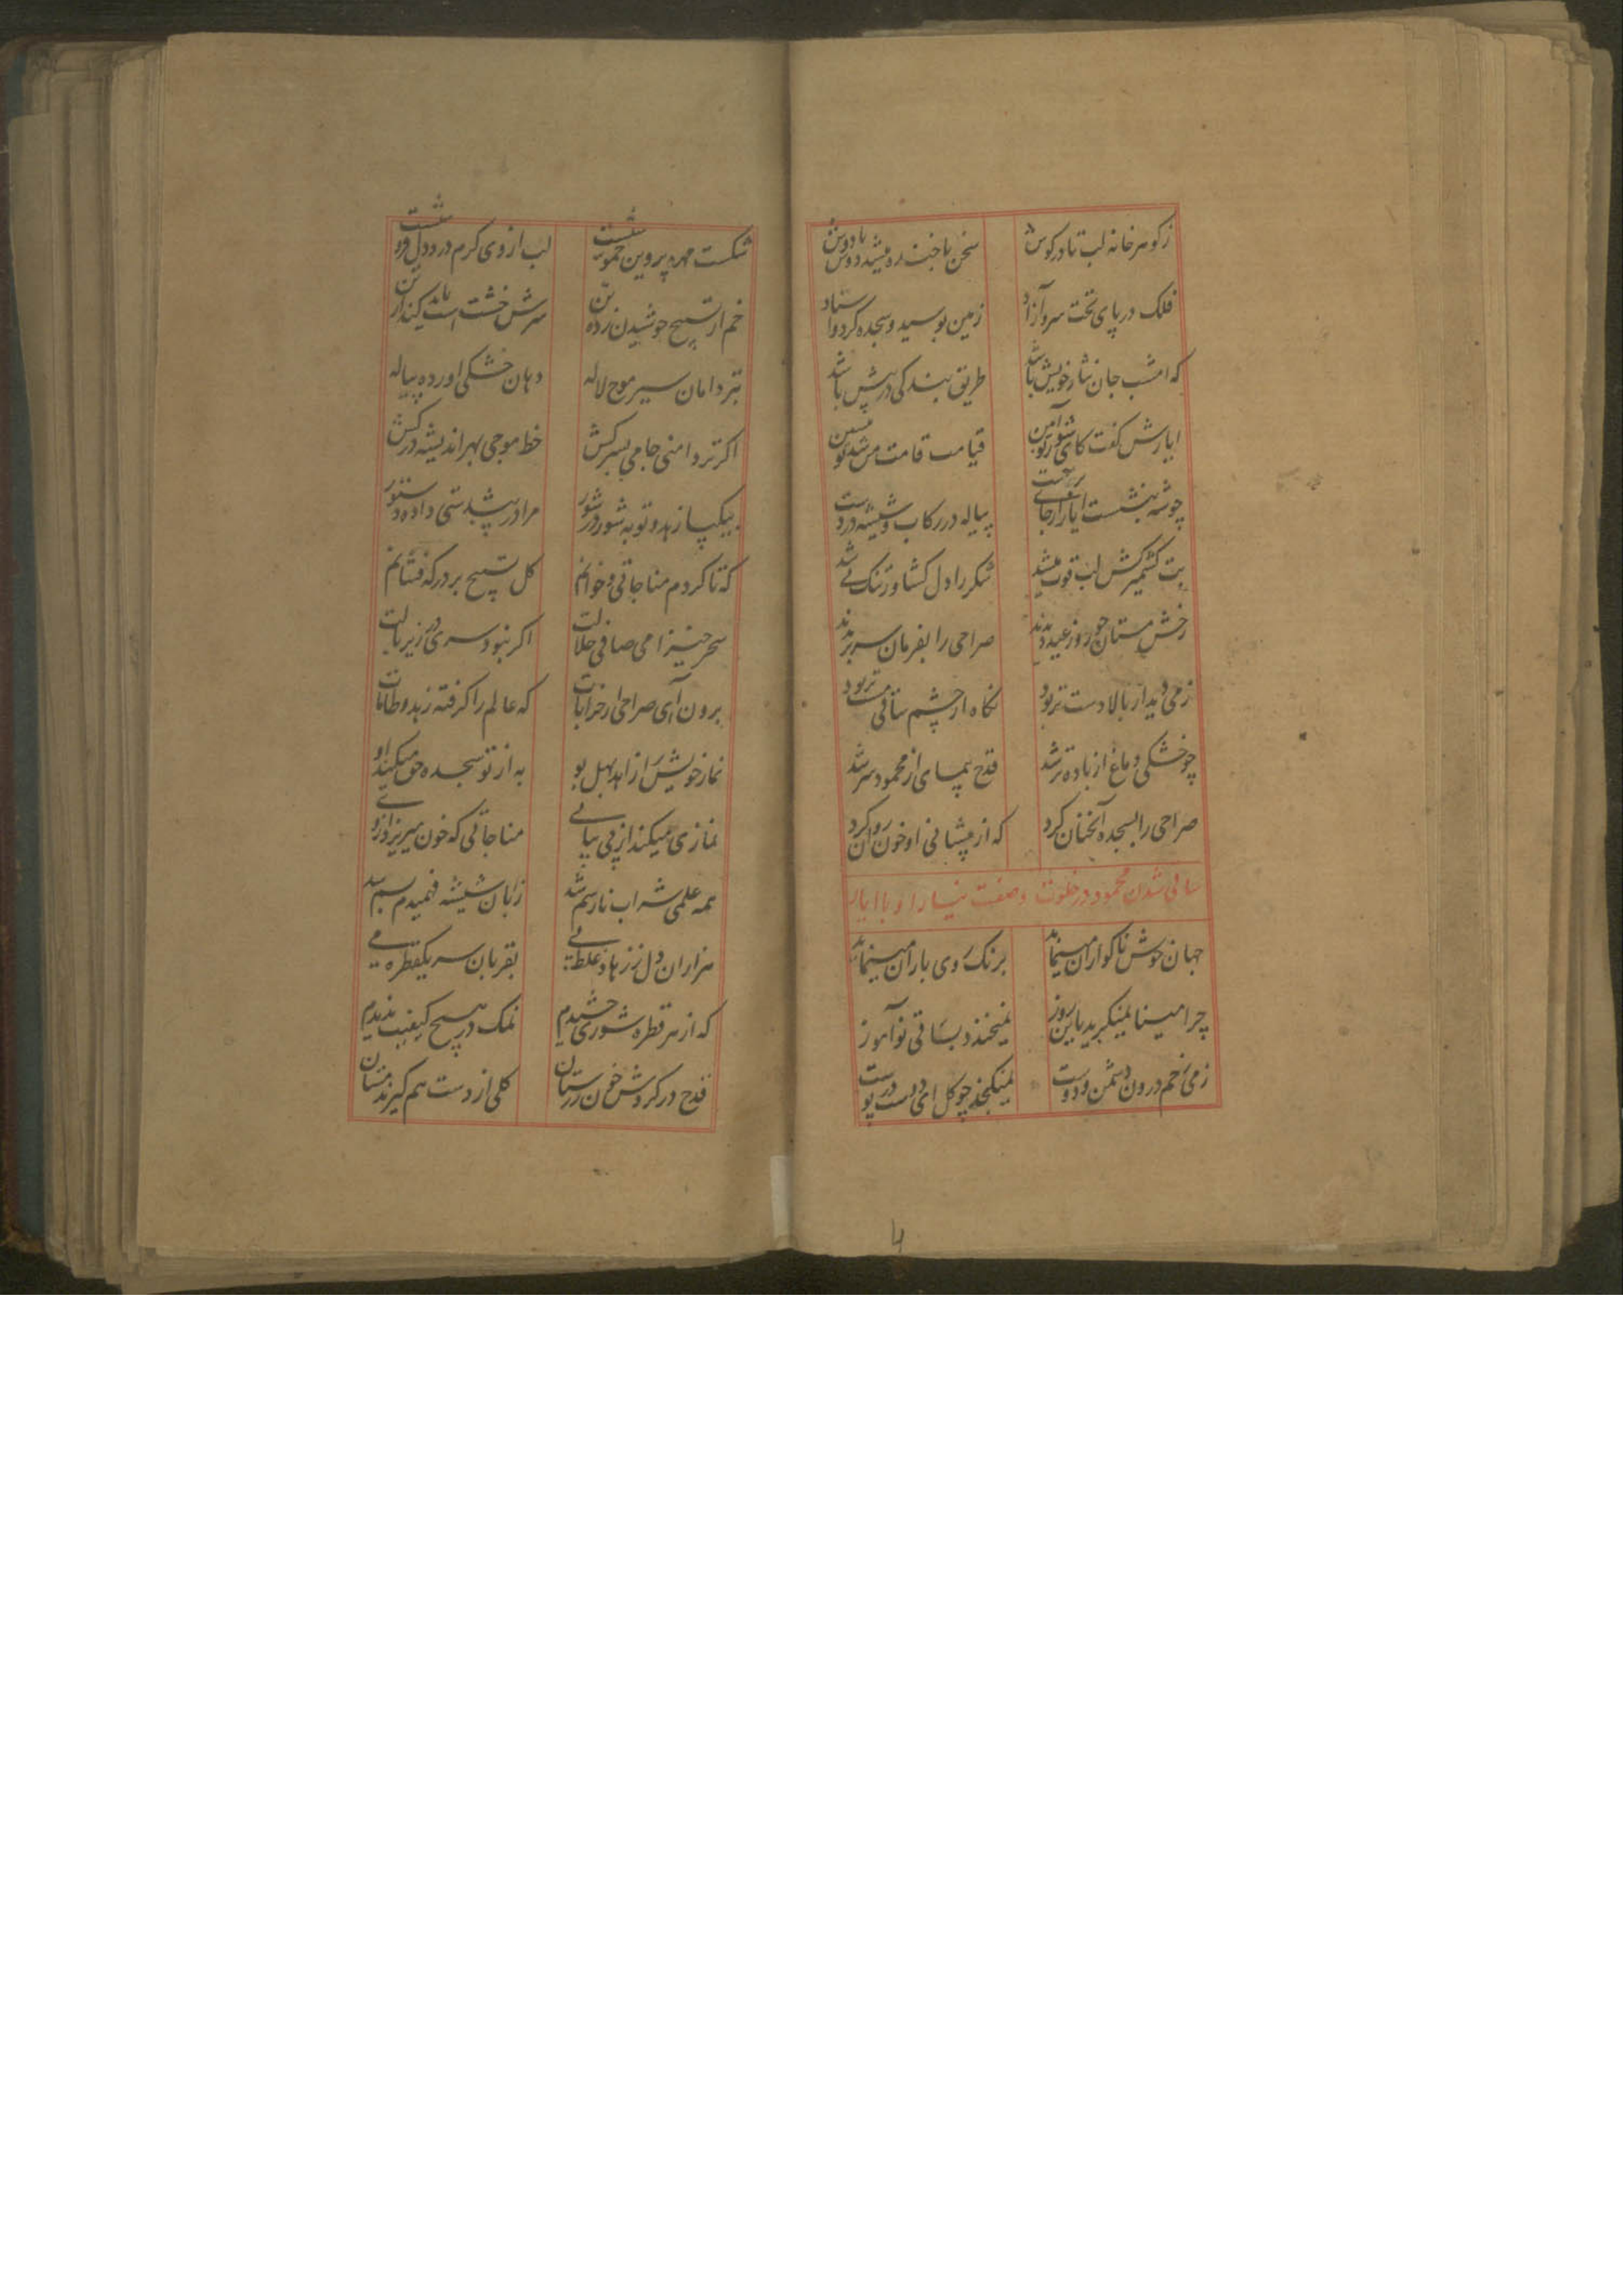 ز کوهر خانه لب تا در کوش سخن با خنده میشد دوش بادوش
فلک در پای تخت سرو آزاد زمین بوسید و سجده کرد و استاد
که امشب جان نثار خویش باشد طریق بندکی در پیش باشد
ایازش کفت کای قیامت قامت من
چو شه بنشست ایاز از جای برجست پیاله در رکاب و شیشه در دست
بت کشمیر کش لب قوت میشد شکر را دل کشاد و تنک می شد
رخش مستان چو روز عید دیدند صراحی را بفرمان سر بریدند
ز می دیدار بالا دست تر بود نکاه از چشم ساقی مست تر بود
چو خشکی دماغ از باده تر شد قدح پیمای از محمود سر شد
صراحی را بسجده آنچنان کرد که از پیشانی او خون روان کرد
ساقی شدن محمود در خلوت و صفت نیاز او با ایاز
جهان خوش ناکوارا مینماید برنک روی یاران مینماید
چرا مینا نمیکرید باین روز نمیخندد بساقی نوآموز
ز می زخم درون دشمن و دوست نمیکنجد چو کل ای دوست در پوست
شکست مهره پروین خموشست لب از وی کرم درد دل فروشست
خم از تسبیح جوشیدن زده تن سرش خشت است
بتر دامان سیر موج لاله دهان خشکی اورده پیاله
اکر تر دامنی جامی بسر کش خط موجی بهر اندیشه در کش
بیکپا زهد و توبه شور در شور مرا در پیشدستی داده دستور
که تا کردم مناجاتی و خوانم کل تسبیح بر درکه فشانم
سحر خیز امی صافی حلالت اکر نبود سری در زیر بالت
برون آی صراحی از خرابات که عالم را کرفته زهد و طامات
نماز خویش را زاهد بهل بو به از تو سجده حق میکند او
نمازی میکند از پی پیاپی مناجاتی که خون میریزد از وی
همه علمی شراب نارسم شد زبان شیشه فهمیدم بسم شد
هزاران دل ز زهاد بقربان سر یکقطره می
که از هر قطره شوری چشیدم نمک در هیچ کیفیت ندیدم
قدح در کردش خون رزستان کلی از دست هم کیرند مستان